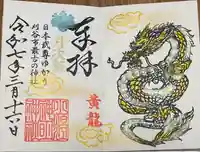 奉拝
日本武尊ゆかり
刈谷市最古の神社
令和七年三月十六日
黄龍